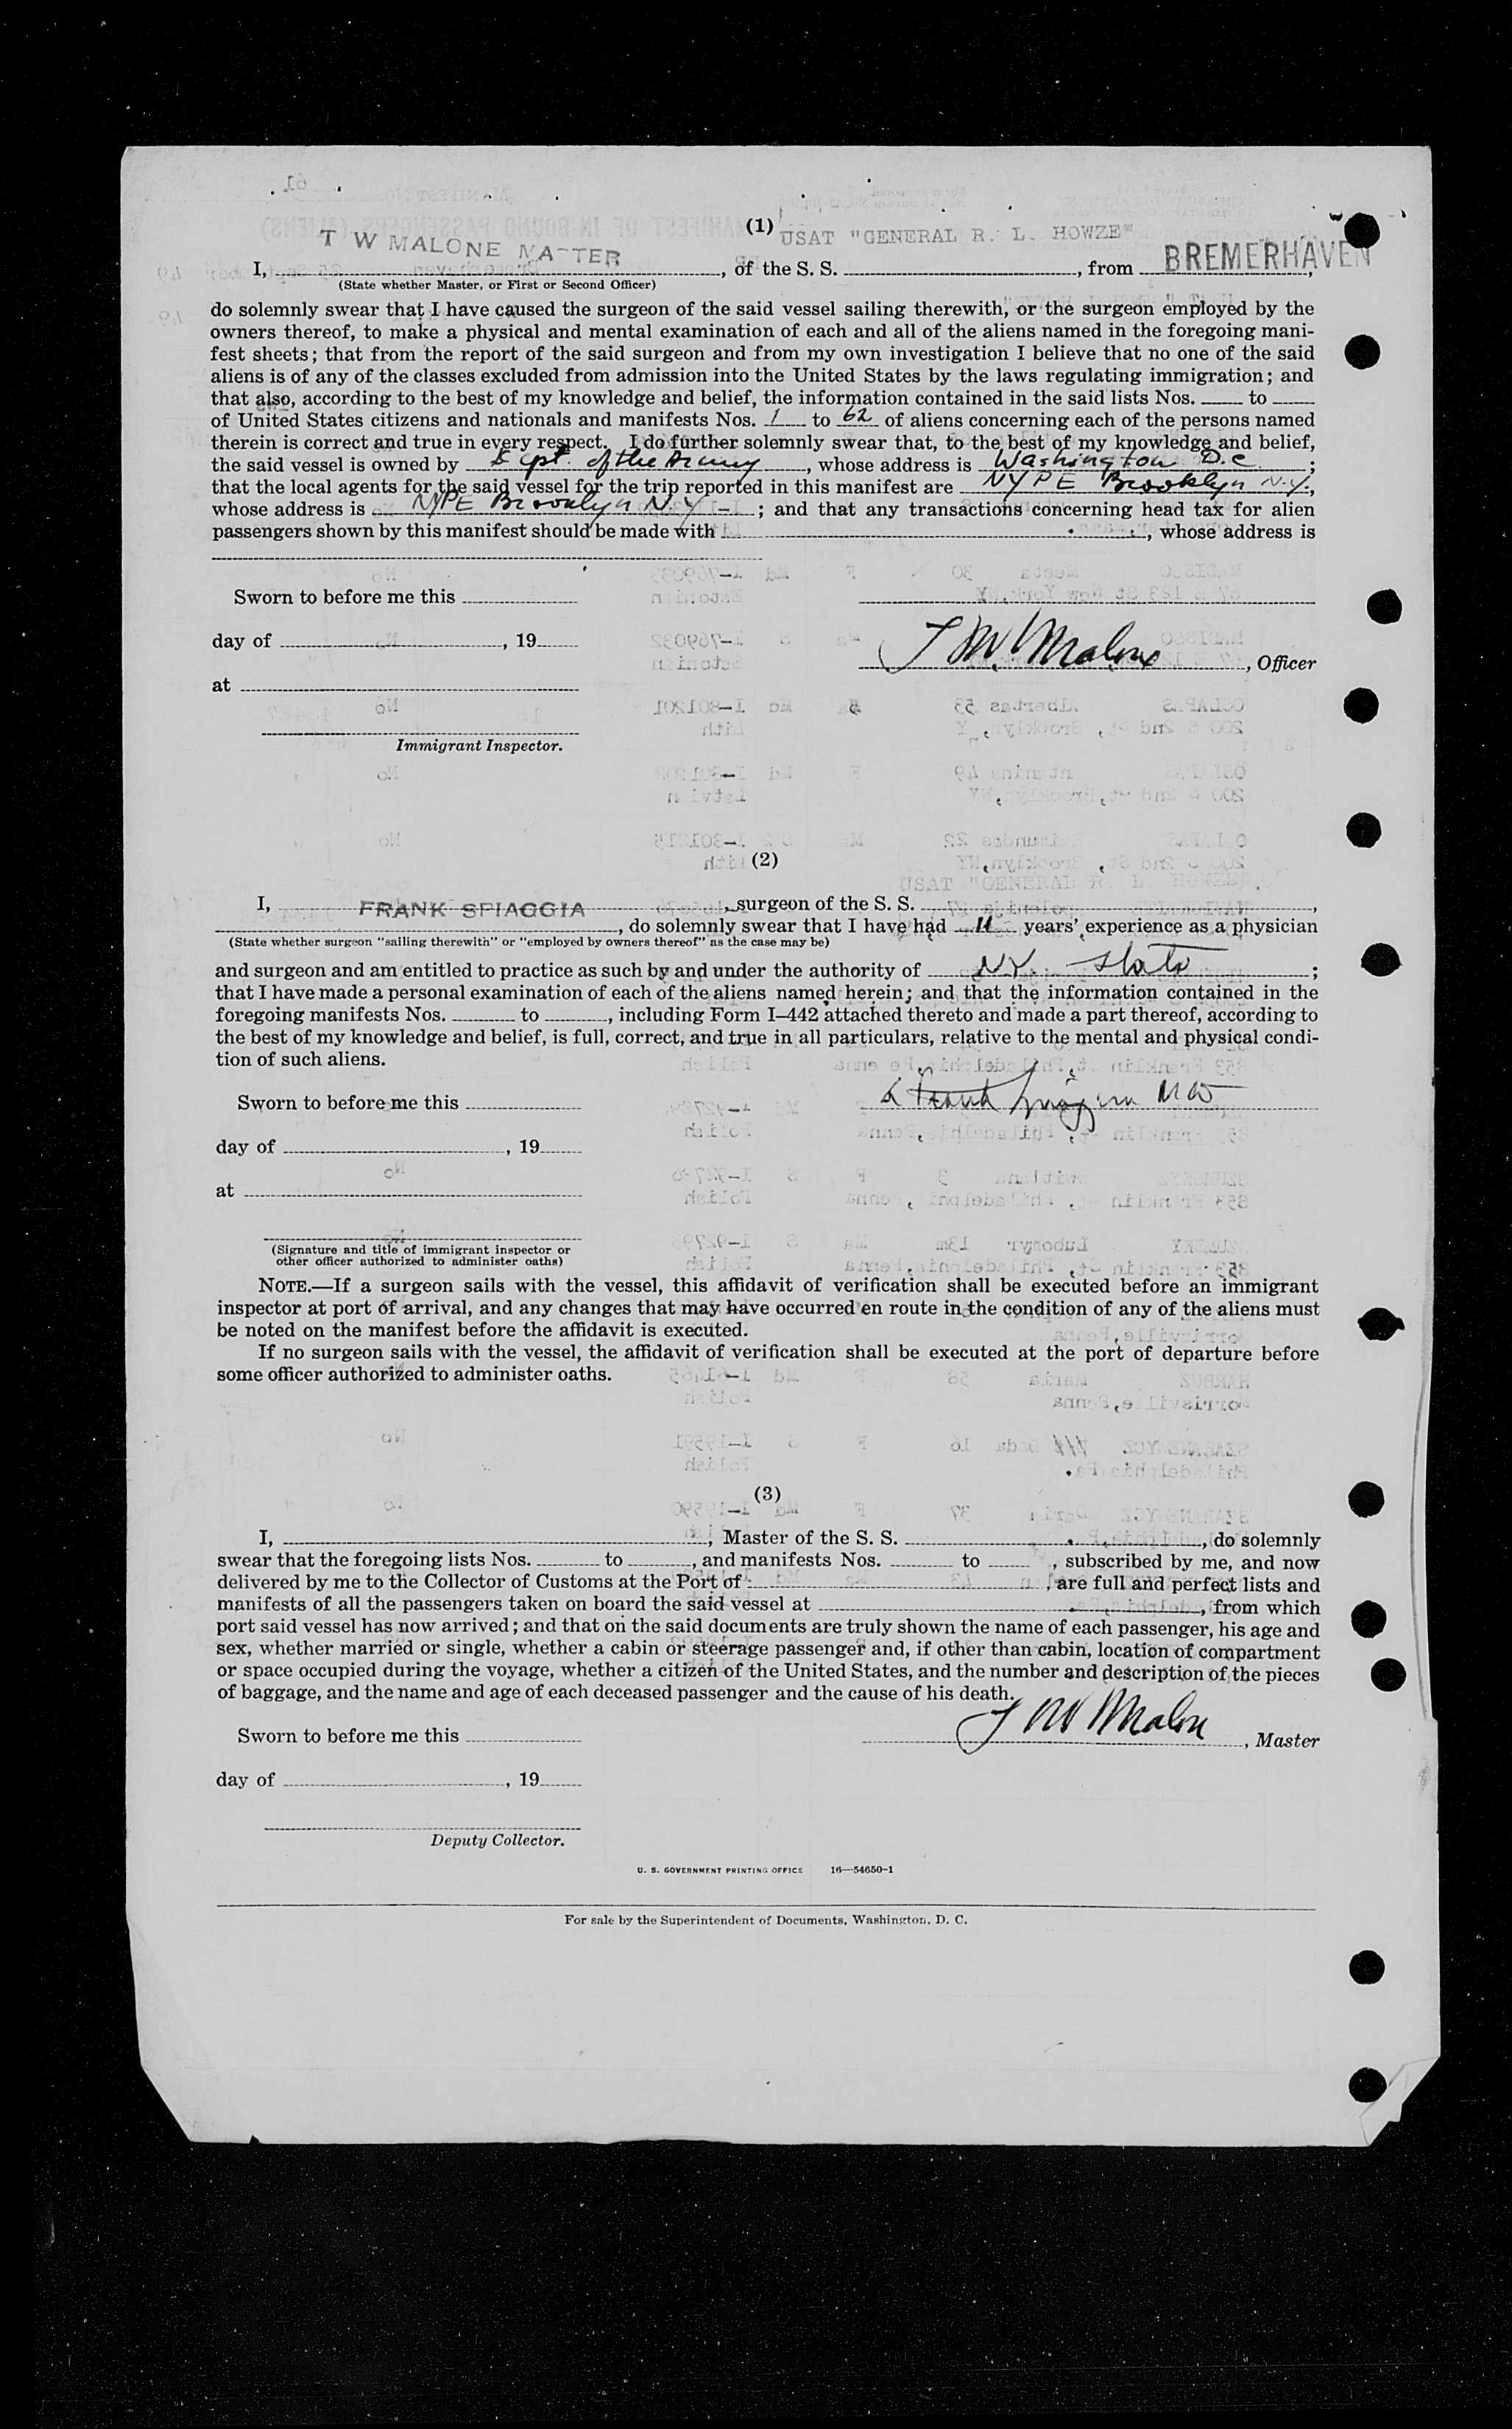 (1)
T W MALONE MASTER USAT "GENERAL R. L. HOWZE" BREMERHAVEN
I, , of the S. S. , from ,
(State whether Master, or First or Second Officer)
do solemnly swear that I have caused the surgeon of the said vessel sailing therewith, or the surgeon employed by the
owners thereof, to make a physical and mental examination of each and all of the aliens named in the foregoing mani-
fest sheets; that from the report of the said surgeon and from my own investigation I believe that no one of the said
aliens is of any of the classes excluded from admission into the United States by the laws regulating immigration; and
that also, according to the best of my knowledge and belief, the information contained in the said lists Nos. to
of United States citizens and nationals and manifests Nos. 1 to 62 of aliens concerning each of the persons named
therein is correct and true in every respect. I do further solemnly swear that, to the best of my knowledge and belief,
the said vessel is owned by Dept. of the Army, whose address is Washington D.C. ;
that the local agents for the said vessel for the trip reported in this manifest are NYPE Brooklyn N.Y.,
whose address is NYPE Brooklyn N.Y ; and that any transactions concerning head tax for alien
passengers shown by this manifest should be made with , whose address is
Sworn to before me this
day of , 19 T W Malone, Officer
at
Immigrant Inspector.
(2)
USAT "GENERAL R. L. HOWZE"
I, FRANK SPIAGGIA, surgeon of the S. S. ,
, do solemnly swear that I have had 11 years' experience as a physician
(State whether surgeon "sailing therewith" or "employed by owners thereof" as the case may be)
and surgeon and am entitled to practice as such by and under the authority of N.Y. State ;
that I have made a personal examination of each of the aliens named herein; and that the information contained in the
foregoing manifests Nos. to , including Form I-442 attached thereto and made a part thereof, according to
the best of my knowledge and belief, is full, correct, and true in all particulars, relative to the mental and physical condi-
tion of such aliens.
Sworn to before me this Frank Spiaggia MD
day of , 19
at
(Signature and title of immigrant inspector or
other officer authorized to administer oaths)
NOTE.—If a surgeon sails with the vessel, this affidavit of verification shall be executed before an immigrant
inspector at port of arrival, and any changes that may have occurred en route in the condition of any of the aliens must
be noted on the manifest before the affidavit is executed.
If no surgeon sails with the vessel, the affidavit of verification shall be executed at the port of departure before
some officer authorized to administer oaths.
(3)
I, , Master of the S. S. , do solemnly
swear that the foregoing lists Nos. to , and manifests Nos. to , subscribed by me, and now
delivered by me to the Collector of Customs at the Port of , are full and perfect lists and
manifests of all the passengers taken on board the said vessel at , from which
port said vessel has now arrived; and that on the said documents are truly shown the name of each passenger, his age and
sex, whether married or single, whether a cabin or steerage passenger and, if other than cabin, location of compartment
or space occupied during the voyage, whether a citizen of the United States, and the number and description of the pieces
of baggage, and the name and age of each deceased passenger and the cause of his death.
Sworn to before me this T W Malone, Master
day of , 19
Deputy Collector.
U. S. GOVERNMENT PRINTING OFFICE 16—54650-1
For sale by the Superintendent of Documents, Washington, D. C.